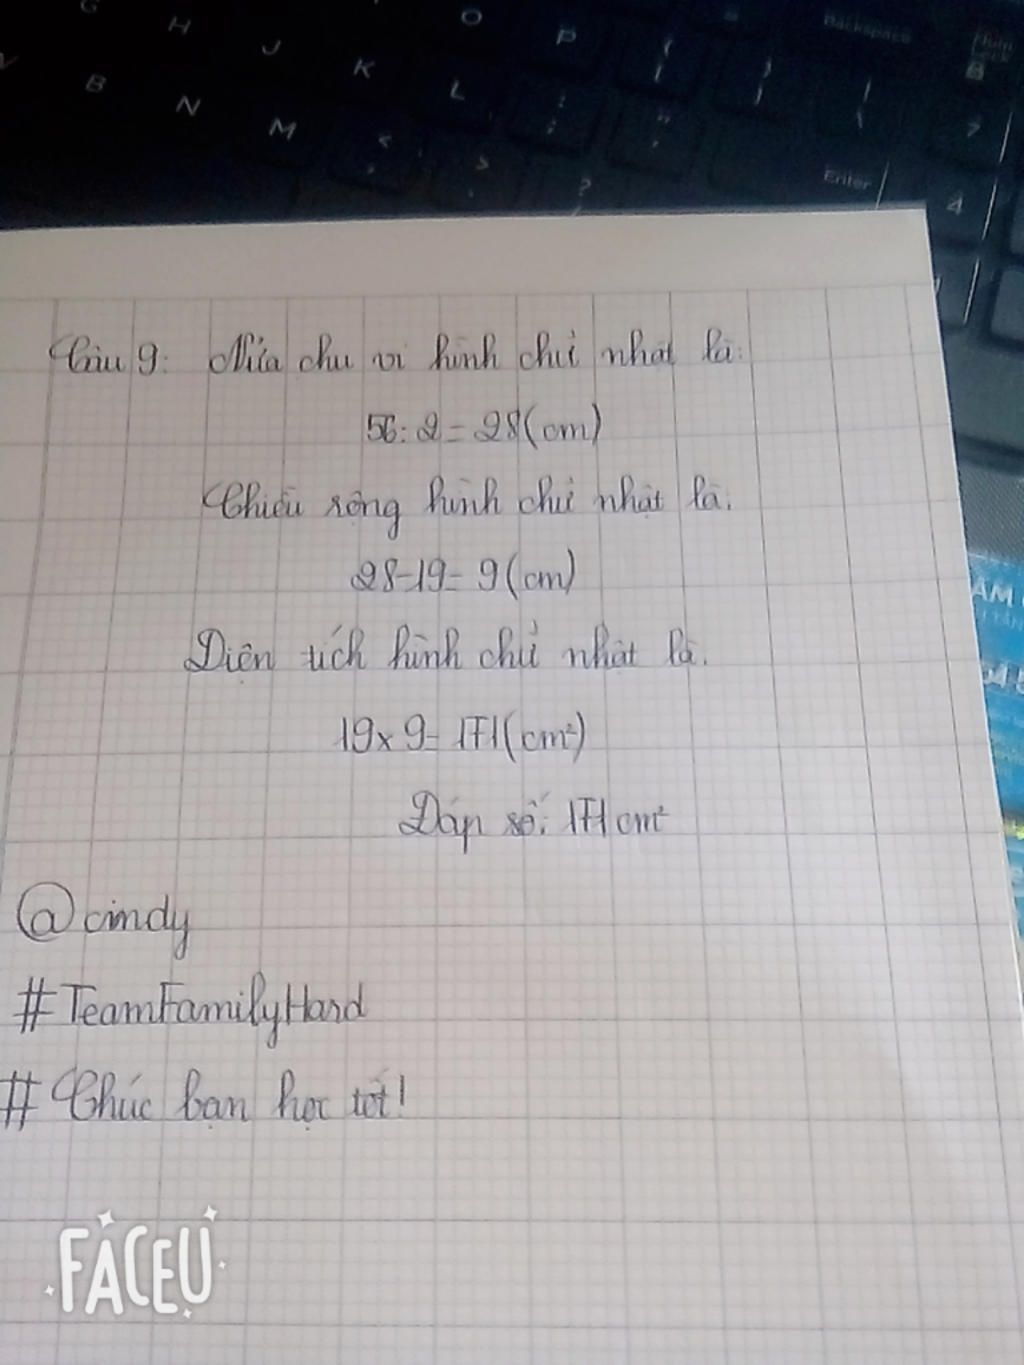 G H J K L O P { [ } ] \ Backspace Num Lock
V B N M < , > . ? : ; " ' Enter 7 4
Câu 9: Nửa chu vi hình chữ nhật là:
56: 2 = 28 (cm)
Chiều rộng hình chữ nhật là:
28-19= 9 (cm)
Diện tích hình chữ nhật là:
19x 9= 171 (cm²)
Đáp số: 171 cm²
@cindy
#TeamFamilyHard
# Chúc bạn học tốt!
FACEU